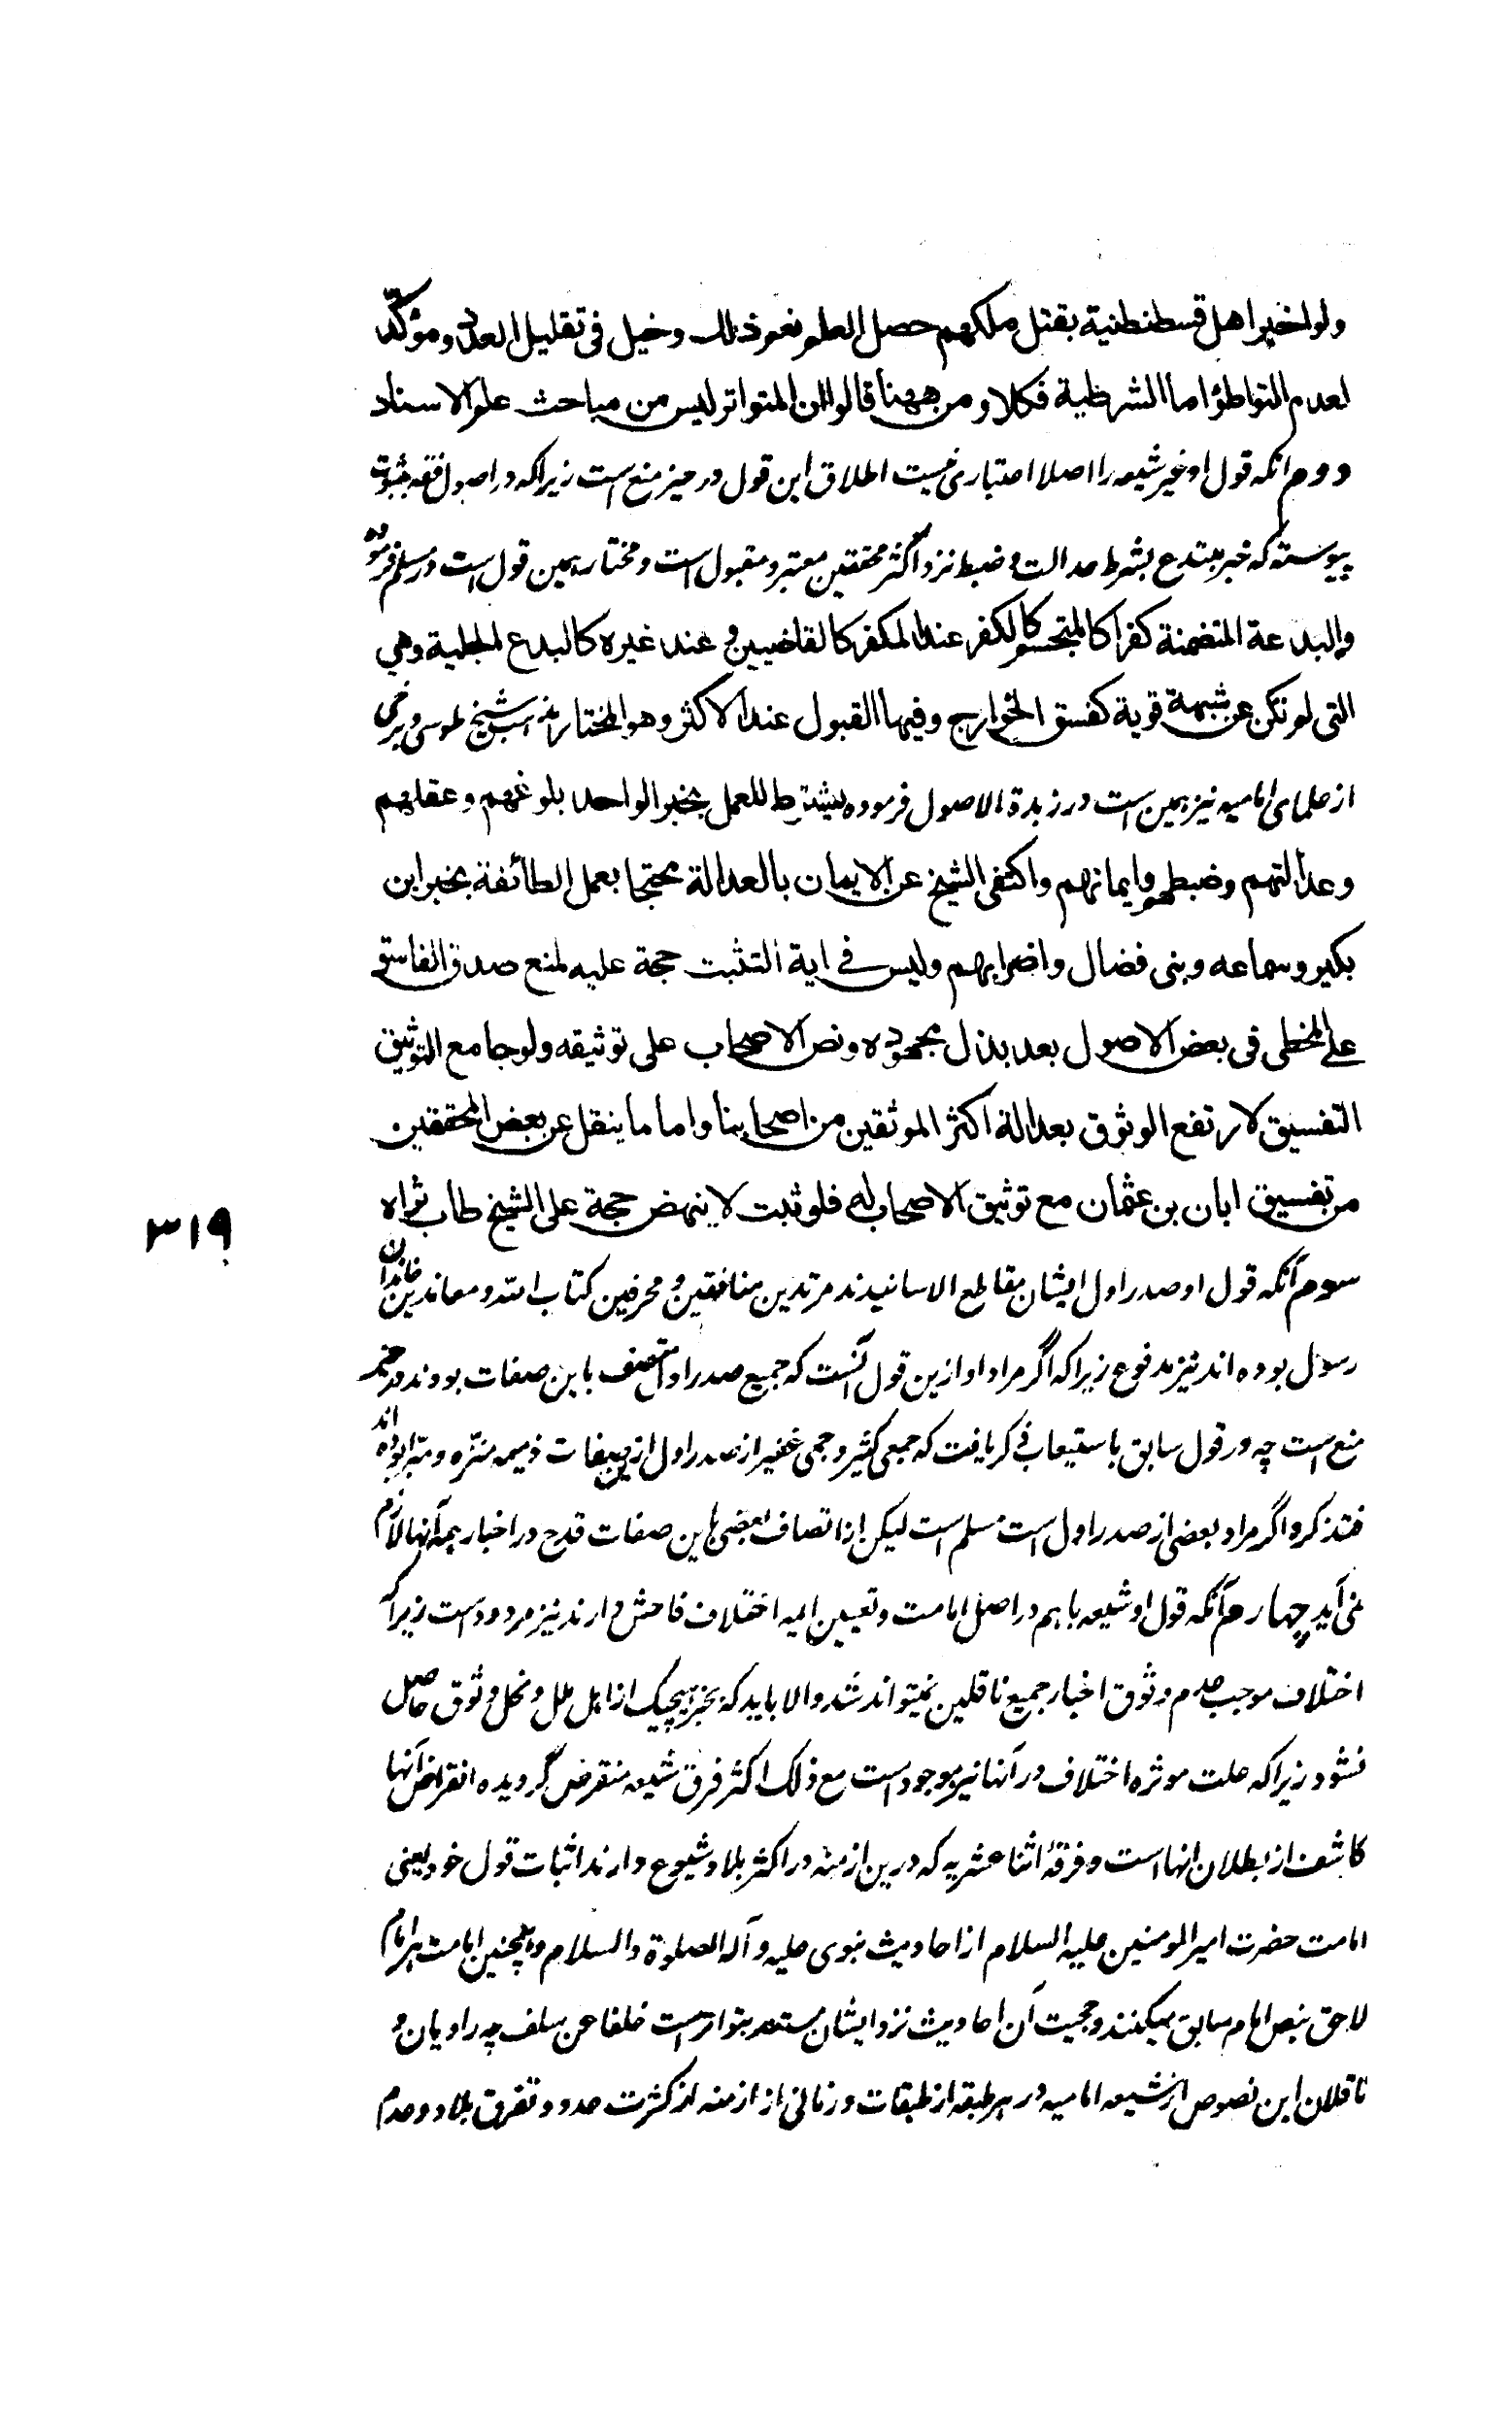 ولو اخبر اهل قسطنطنية بقتل ملكهم حصل العلم نعم ذلك دخيل فى تقليل العدد و مؤكد
لعدم التواطؤ اما الشرطية فكلا و من ههنا قالوا ان المتواتر ليس من مباحث علم الاسناد
دوم انكه قول او غير شيعه را اصلا اعتبارى نيست اطلاق اين قول در حيز منع است زيراكه در اصول فقه بثبوت
پيوسته كه خبر مبتدع بشرط عدالت و ضبط نزد اكثر محققين معتبر و مقبول است و مختار همين قول است در مسلم فرموده
والبدعة المتضمنة كفرا كالمتجسم كالكفر عند المكفر كالقاضيين و عند غيره كالبدع الجلية وهي
التى لم تكن عن شبهة قوية كفسق الخوارج و فيها القبول عند الاكثر و هو المختار مذهب شيخ طوسى و برخى
از علماى اماميه نيز همين است در زبدة الاصول فرموده يشترط للعمل بخبر الواحد بلوغهم و عقلهم
و عدالتهم و ضبطهم و ايمانهم و اكتفى الشيخ عن الايمان بالعدالة محتجا بعمل الطائفة بخبر ابن
بكير و سماعه و بنى فضال و اضرابهم وليس فى اية التثبت حجة عليه لمنع صدق الفاسق
على المخطى فى بعض الاصول بعد بذل مجهوده و نص الاصحاب على توثيقه ولو جامع التوثيق
التفسيق لارتفع الوثوق بعدالة اكثر الموثقين من اصحابنا و اما ما ينقل عن بعض المحققين
من تفسيق ابان بن عثمان مع توثيق الاصحاب له فلو ثبت لاينهض حجة على الشيخ طاب ثراه
۳۱۹
سوم آنكه قول او صدر اول ايشان مقاطع الاسانيدند مرتدين منافقين و محرفين كتاب الله و معاندين خاندان
رسول بوده اند نيز مدفوع زيراكه اگر مراد او ازين قول آنست كه جميع صدر اول متصف باين صفات بودند در حيز
منع است چه در قول سابق باستيعاب ذكر يافت كه جمعى كثير و جمى غفير از صدر اول ازين صفات ذميمه منزه و مبرا بوده اند
فتذكر و اگر مراد بعضى از صدر اول است مسلم است ليكن از اتصاف بعضى باين صفات قدح در اخبار همه آنها لازم
نمى آيد چهارم آنكه قول او شيعه باهم در اصل امامت و تعيين ائمه اختلاف فاحش دارند نيز مردود است زيراكه
اختلاف موجب عدم وثوق اخبار جميع ناقلين نميتواند شد والا بايد كه بخبر هيچيك از اهل ملل و نحل وثوق حاصل
نشود زيراكه علت موثره اختلاف در آنها نيز موجود است مع ذلك اكثر فرق شيعه منقرض گرديده انقراض آنها
كاشف از بطلان انها است و فرقهٔ اثنا عشريه كه درين ازمنه در اكثر بلاد شيوع دارند اثبات قول خود يعنى
امامت حضرت امير المومنين عليه السلام از احاديث نبوى عليه و آله الصلوة و السلام و همچنين امامت هر امام
لاحق بنص امام سابق ميكنند و حجيت آن احاديث نزد ايشان مستند بتواتر است خلفا عن سلف چه راويان و
ناقلان اين نصوص از شيعه اماميه در هر طبقه از طبقات و زمانى از ازمنه از كثرت عدد و تفرق بلاد و عدم